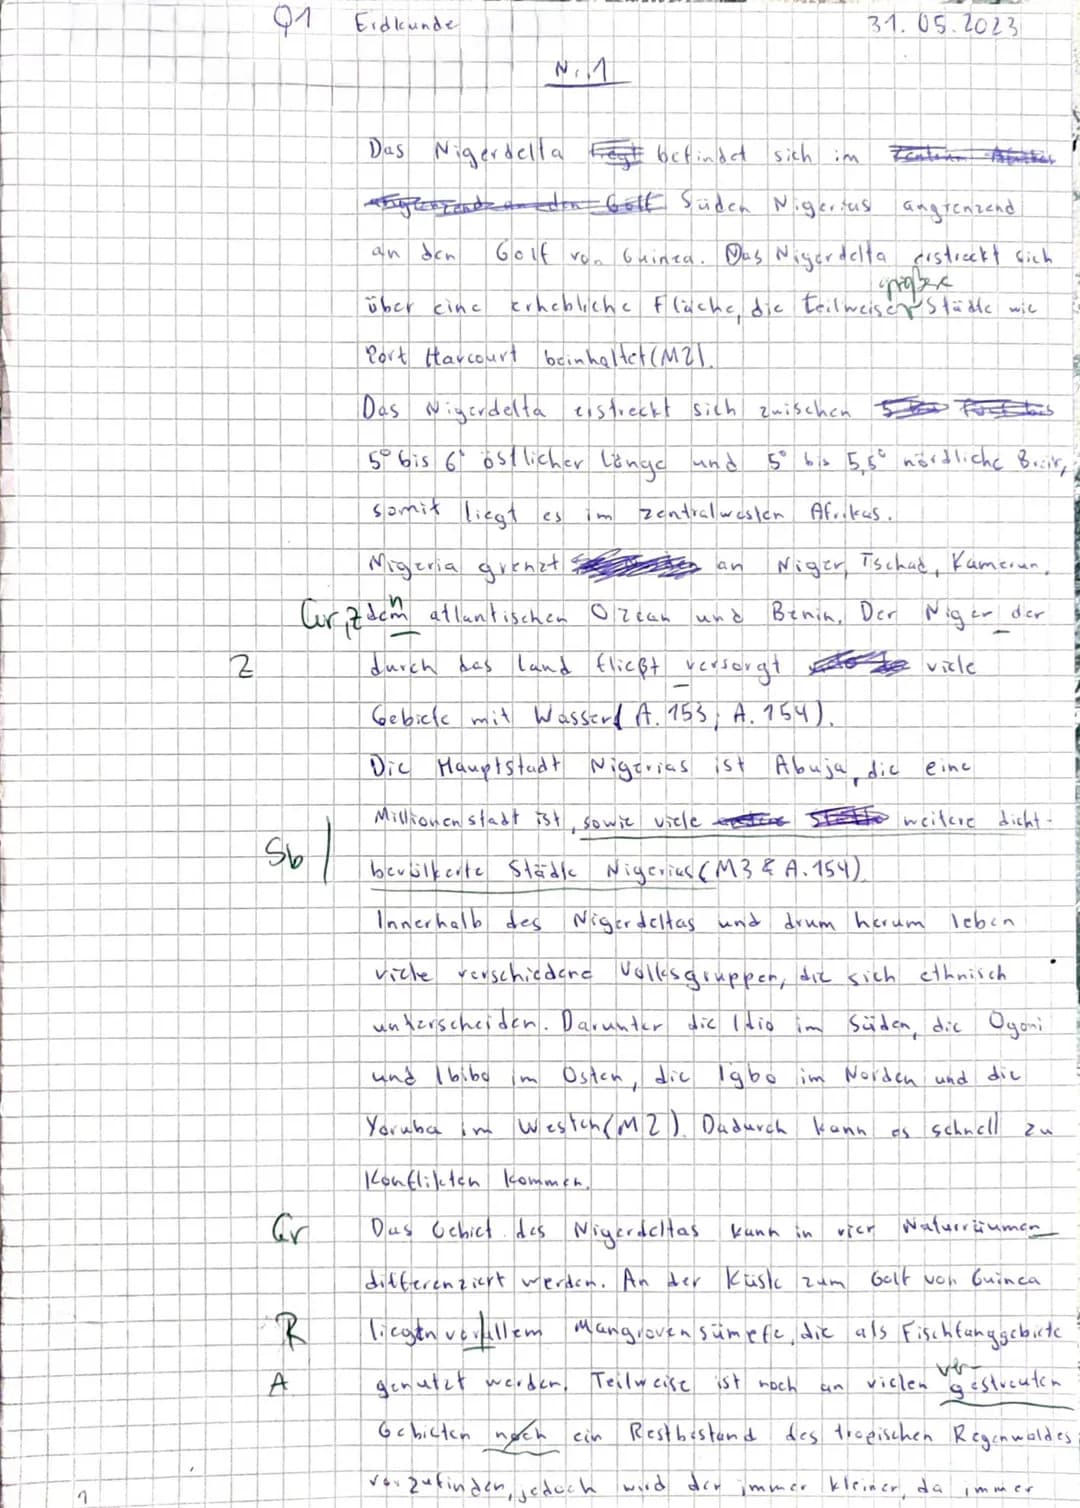 Q1 Erdkunde 31.05.2023
Nr. 1
Das Nigerdelta liegt befindet sich im
angrenzend an den Golf Süden Nigerias angrenzend
an den Golf von Guinea. Das Nigerdelta erstreckt sich
größere
über eine erhebliche Fläche, die teilweise Städte wie
Port Harcourt beinhaltet (M2).
Das Nigerdelta erstreckt sich zwischen
5° bis 6° östlicher Länge und 5° bis 5,5° nördliche Breite,
somit liegt es im zentralwesten Afrikas.
Nigeria grenzt an Niger, Tschad, Kamerun,
Gr, Z dem n atlantischen Ozean und Benin. Der Niger der
Z durch das Land fließt versorgt viele
Gebiete mit Wasser (A. 153; A. 154).
Die Hauptstadt Nigerias ist Abuja, die eine
Millionenstadt ist, sowie viele weitere dicht-
Sb bevölkerte Städte Nigerias (M3 & A. 154)
Innerhalb des Nigerdeltas und drum herum leben
viele verschiedene Volksgruppen, die sich ethnisch
unterscheiden. Darunter die Idio im Süden, die Ogoni
und Ibibo im Osten, die Igbo im Norden und die
Yoruba im Westen (M2). Dadurch kann es schnell zu
Konflikten kommen.
Gr Das Gebiet des Nigerdeltas kann in vier Naturräumen
differenziert werden. An der Küste zum Golf von Guinea
R liegen vor allem Mangrovensümpfe, die als Fischfanggebiete
ver-
A genutzt werden. Teilweise ist noch an vielen gestreuten
Gebieten noch ein Restbestand des tropischen Regenwaldes
vorzufinden, jedoch wird der immer kleiner, da immer
1